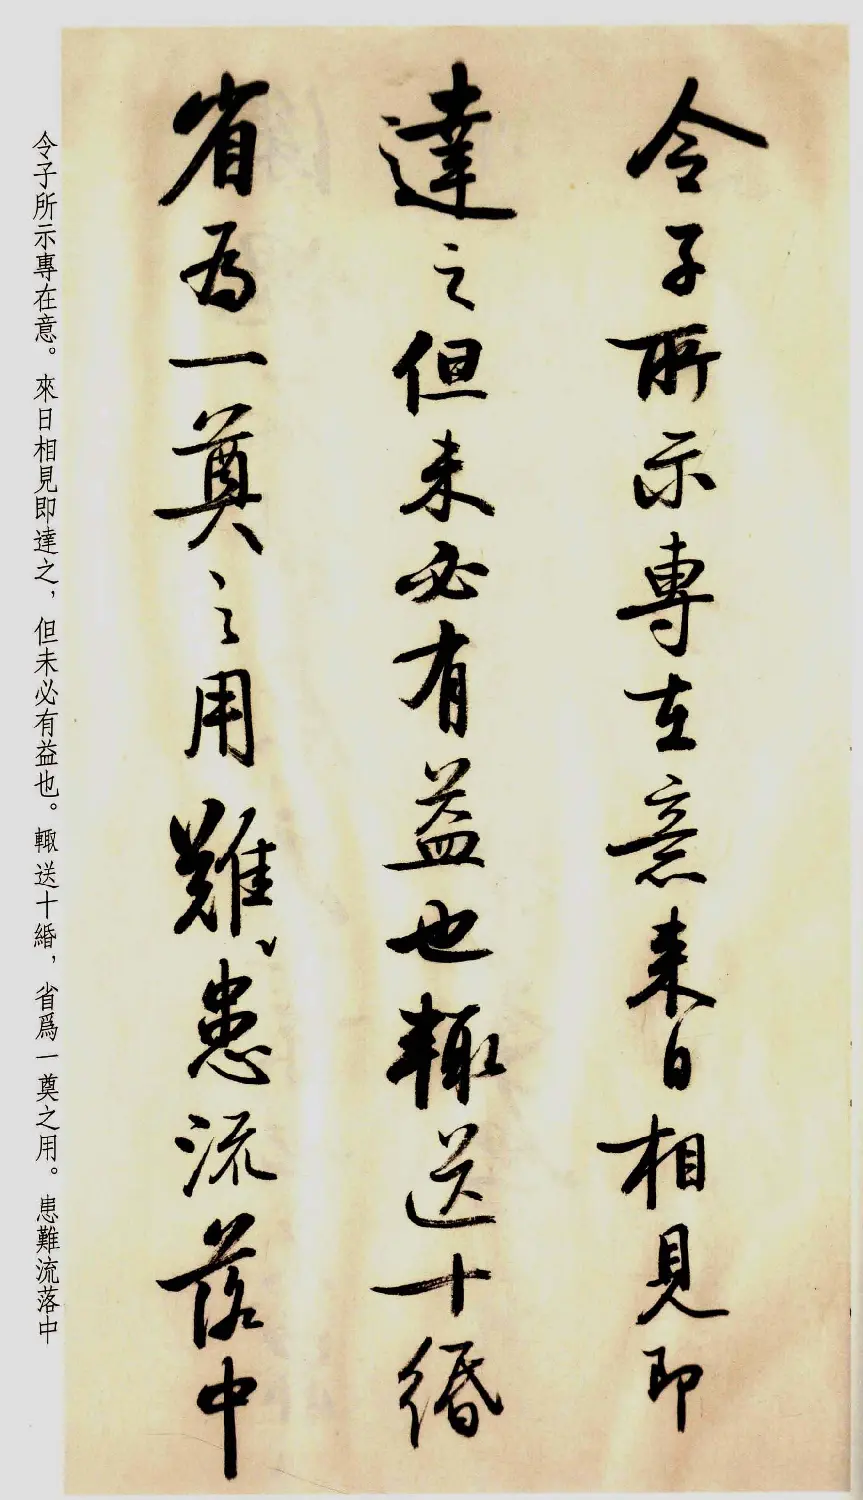 令子所示專在意来日相見即
達之但未必有益也輙送十緡
省為一奠之用難患流落中
令子所示專在意。來日相見即達之，但未必有益也。輙送十緡，省爲一奠之用。患難流落中